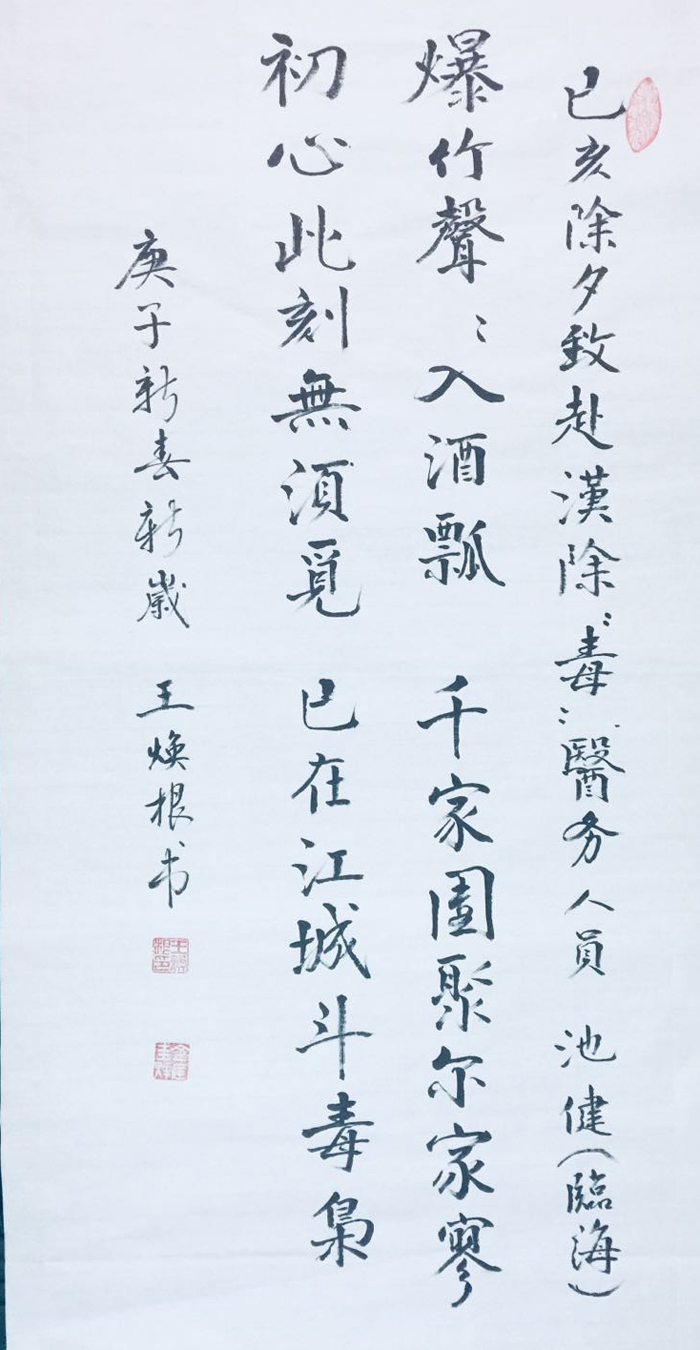 己亥除夕致赴漢除〻毒〻醫务人員 池健(臨海)
爆竹聲〻入酒瓢 千家圍聚尔家寥
初心此刻無須覓 已在江城斗毒梟
庚子新春新歲 王焕根书